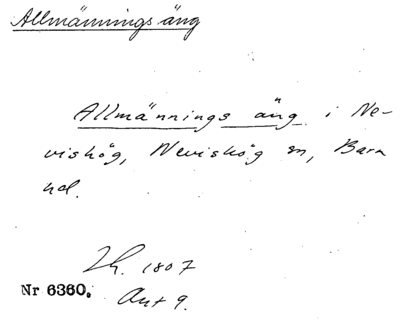 Allmännings äng
Allmännings äng i Ne-
vishög, Nevishög sn, Bara
hd.
Lh. 1807
Nr 6360. Akt 9.